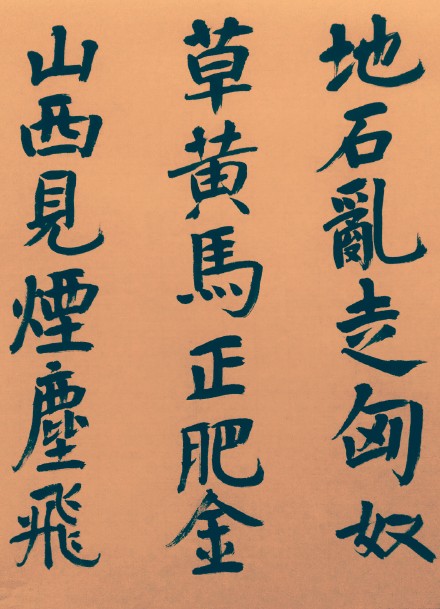 地石亂走匈奴
草黃馬正肥金
山西見煙塵飛